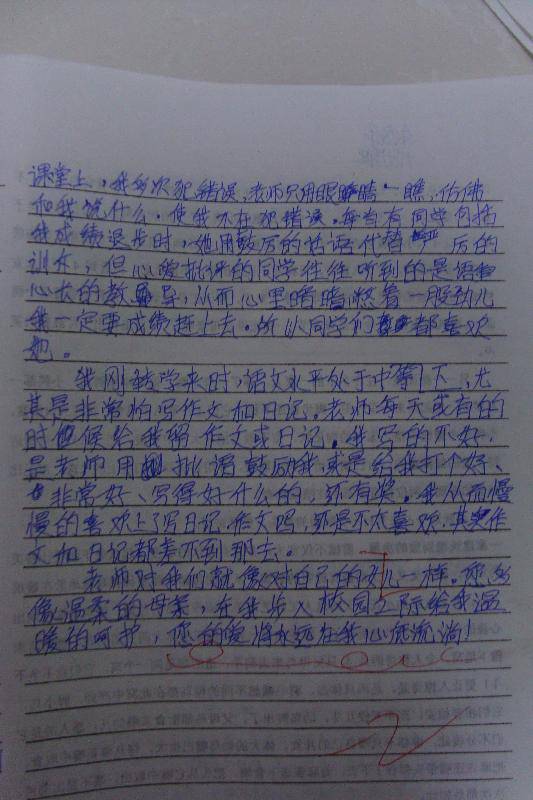 课堂上，我多次犯错误，老师只用眼睛一瞧，仿佛
和我说什么。使我不在犯错误。每当有同学包括
我成绩退步时，她用鼓厉的话语代替严厉的
训斥，但心受批评的同学往往听到的是语
心长的教导，从而心里暗暗憋着一股劲儿
我一定要成绩赶上去。所以同学们都喜欢
她。
我刚转学来时，语文水平处于中等下，尤
其是非常怕写作文和日记。老师每天或有的
时候给我 作文或日记。我写的不好，
是老师用批语鼓励我，或是给我打个好、
非常好、写得好什么的，还有奖，我从而慢
慢的喜欢上了写日记，作文吗，还是不太喜欢，其实作
文和日记都差不到那去。
老师对我们就像对自己的女儿一样。您多
像温柔的母亲，在我步入校园之际给我温
暖的呵护，您的爱将永远在我心底流淌！